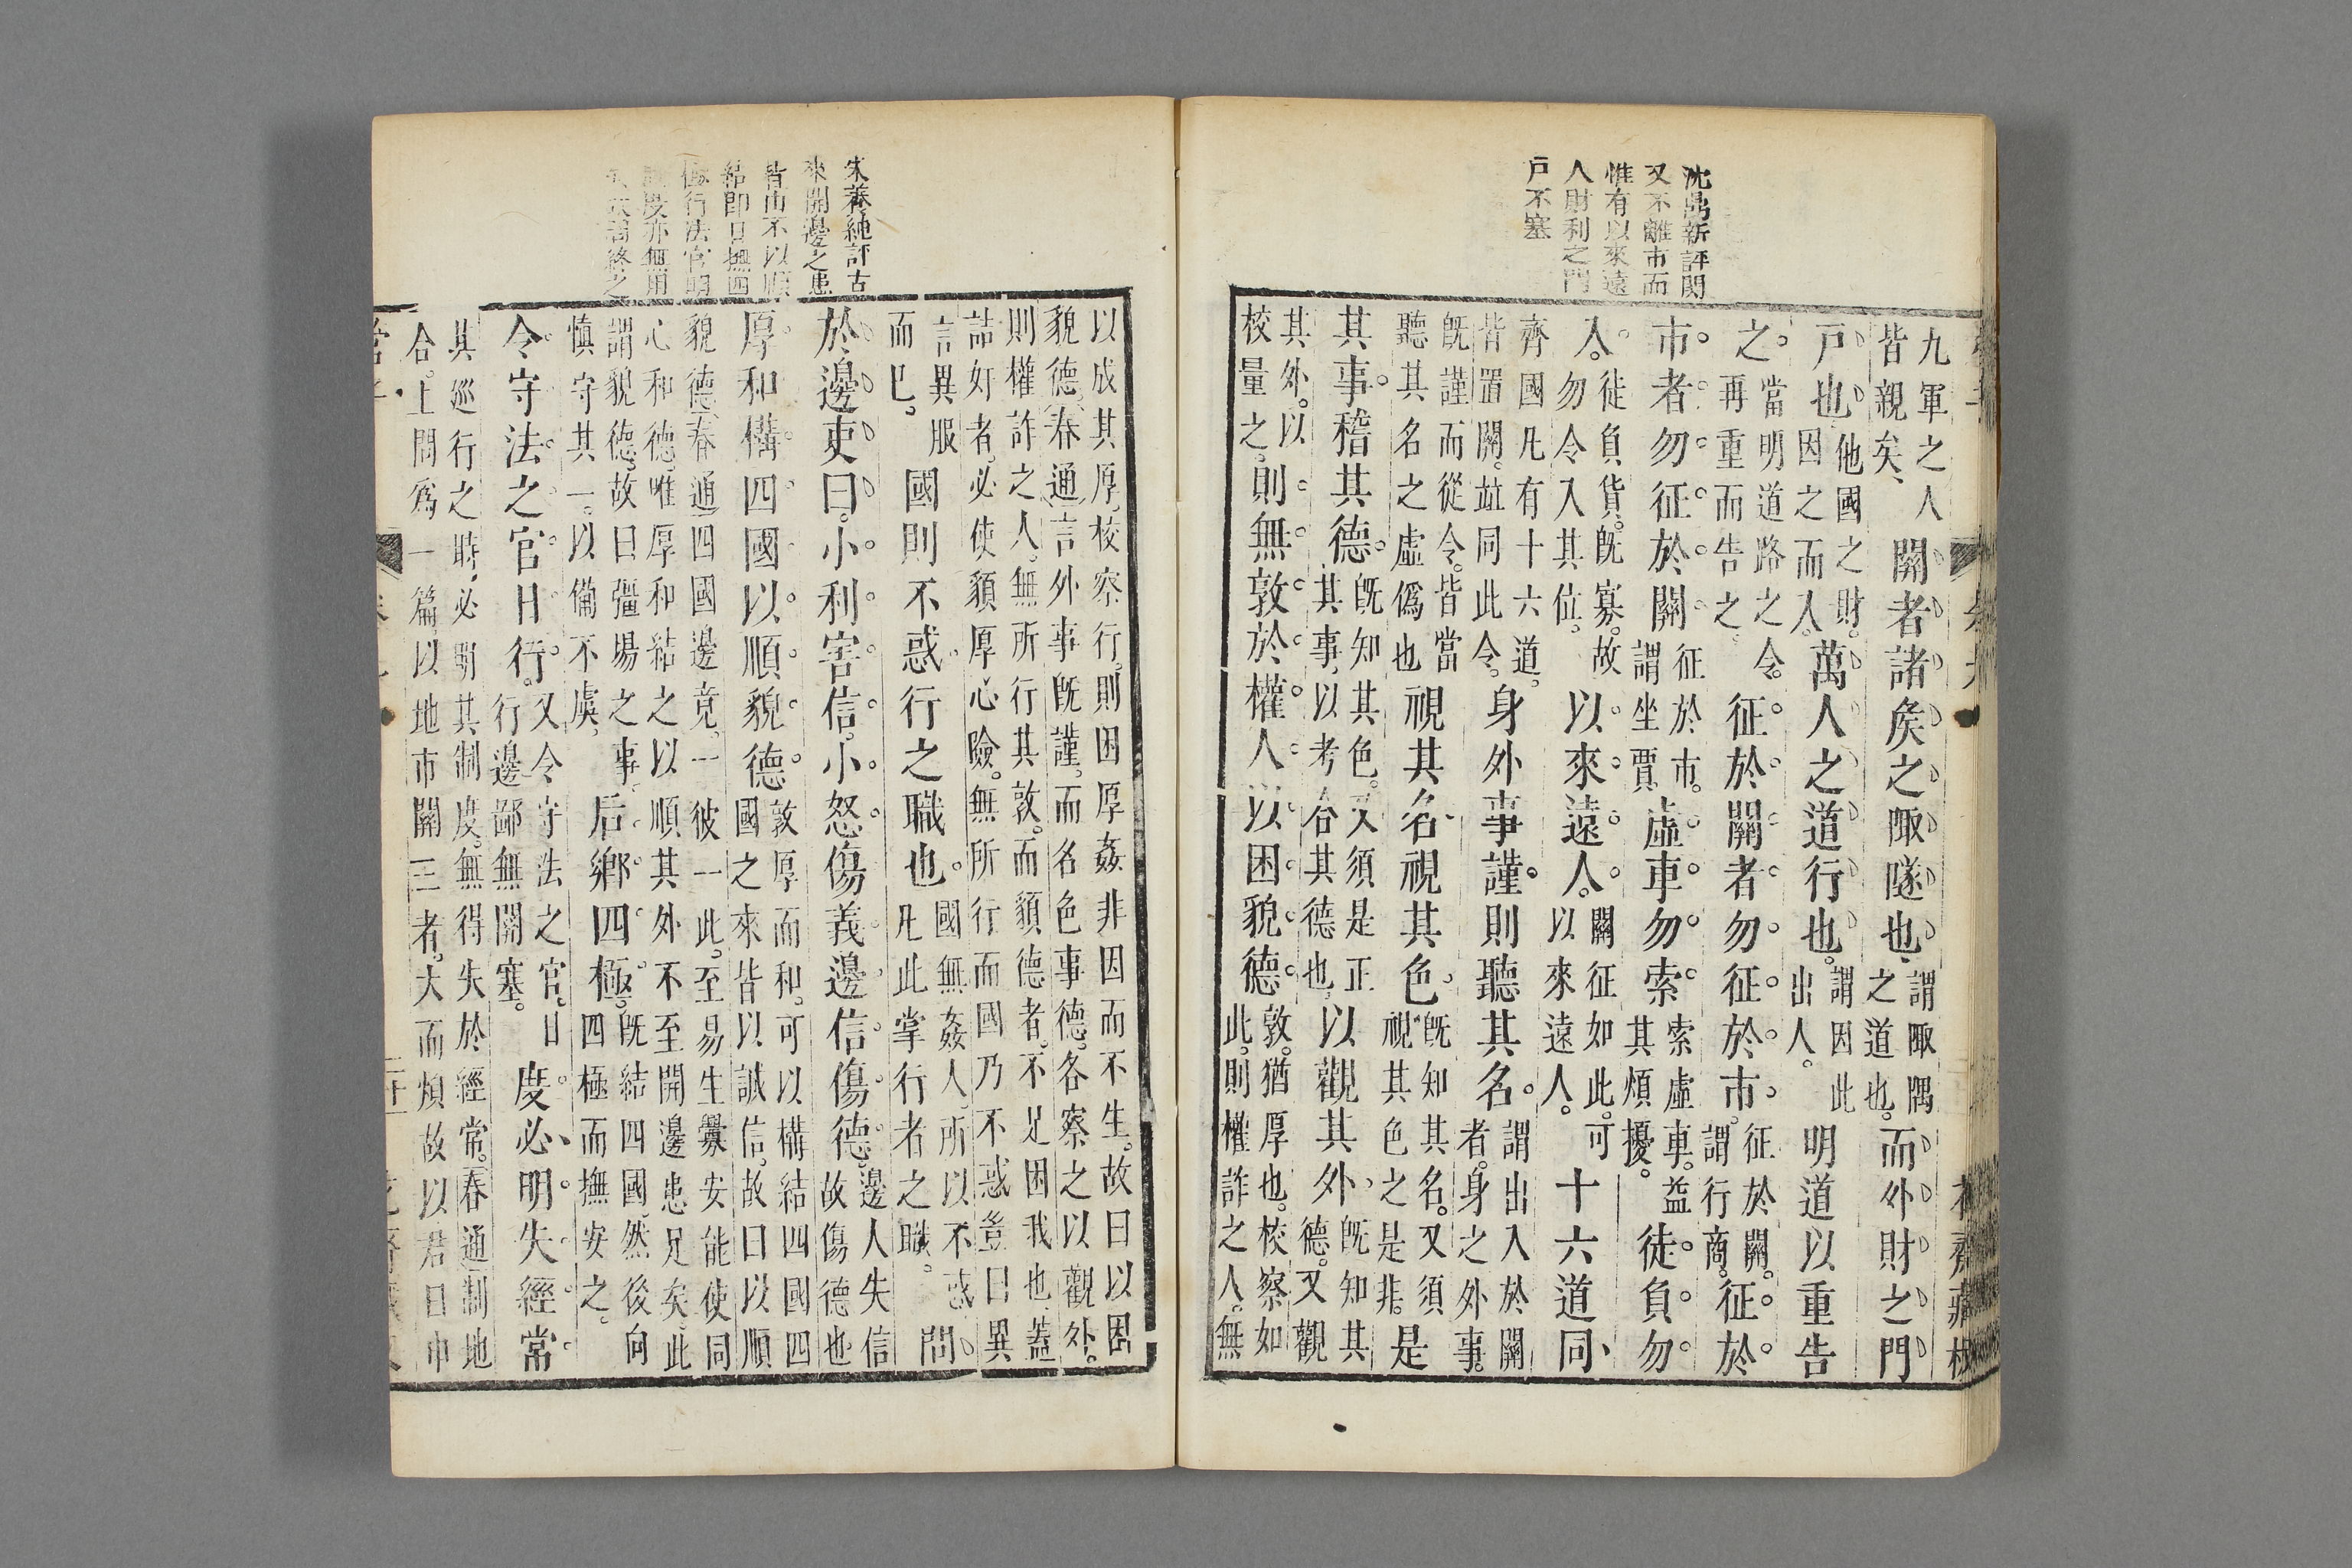 沈鼎新評関
又不離市而
惟有以來遠
人財利之門
戸不塞
九軍之人
皆親矣、
關者諸侯之陬隧也
謂陬隅
之道也。
而外財之門
戸也
他國之財。
因之而入。
萬人之道行也。
謂因此
出人。
明道以重告
之。
當明道路之令。
再重而告之。
征於關者勿征於市。
征於關。
謂行商。
征於
市者勿征於關
征於市。
謂坐賈
虛車勿索
索虛車。益
其煩擾。
徒負勿
入。
徒負貨。既寡。故
勿令入其
以來遠人。
關征如此。可
以來遠人。
十六道同
齊國凡有十六道。
皆置關。竝同此令。
身外事謹則聽其名。
謂出入於關
者。身之外事。
既謹而從令。皆當
聽其名之虛僞也
視其名視其色。
既知其名。又須
視其色之是非。
是
其事。稽其德。
既知其色。又須是正
其事、以考合其德也
以觀其外、
既知其
德。又觀
其外。以
校量之。
則無敦於權人以困貌德。
敦。猶厚也。校察如
此。則權詐之人。無
朱養純評古
來開邊之患
皆由不以順
結卽日撫四
行法官明
度亦無用
終之
以成其厚。校察行。則困厚姦非因而不生。故曰以困
貌德。春通言外事既謹。而名色事德。各察之以觀外。
則權詐之人。無所行其敦。而貌德者。不足困我也、蓋
詰奸者。必使貌厚心險。無所行而國乃不惑豈曰異
言異服
而已。
國則不惑行之職也。
國無姦人。所以不惑
凡此掌行者之職。
問
於邊吏曰。小利害信。小怒傷義邊信傷德。
邊人失信
故傷德也
厚和構四國以順貌德。
敦厚而和。可以構結四國四
國之來皆以誠信。故曰以順
貌德春通四國邊竟。一彼一此。至易生釁安能使同
心和德。唯厚和結之以順其外不至開邊患足矣。此
謂貌德。故曰彊場之事
愼守其一。以備不虞
后鄉四極。
既結四國然後向
四極而撫安之。
令守法之官日行。
又令守法之官。日
行邊鄙無關塞。
度必明失經常
其巡行之時。必明其制度。無得失於經常。春通制地
合。上問爲一篇。以地市關三者。大而煩故以君曰市